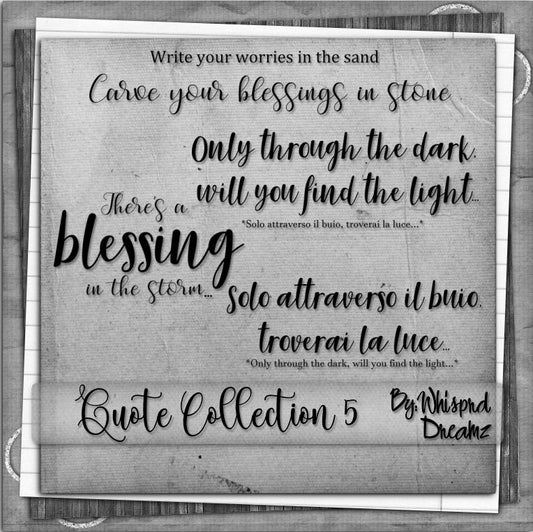 Write your worries in the sand
Carve your blessings in stone
Only through the dark,
will you find the light...
*Solo attraverso il buio, troverai la luce...*
There's a
blessing
in the storm...
Solo attraverso il buio,
troverai la luce...
*Only through the dark, will you find the light...*
Quote Collection 5
By: Whisprd
Dreamz